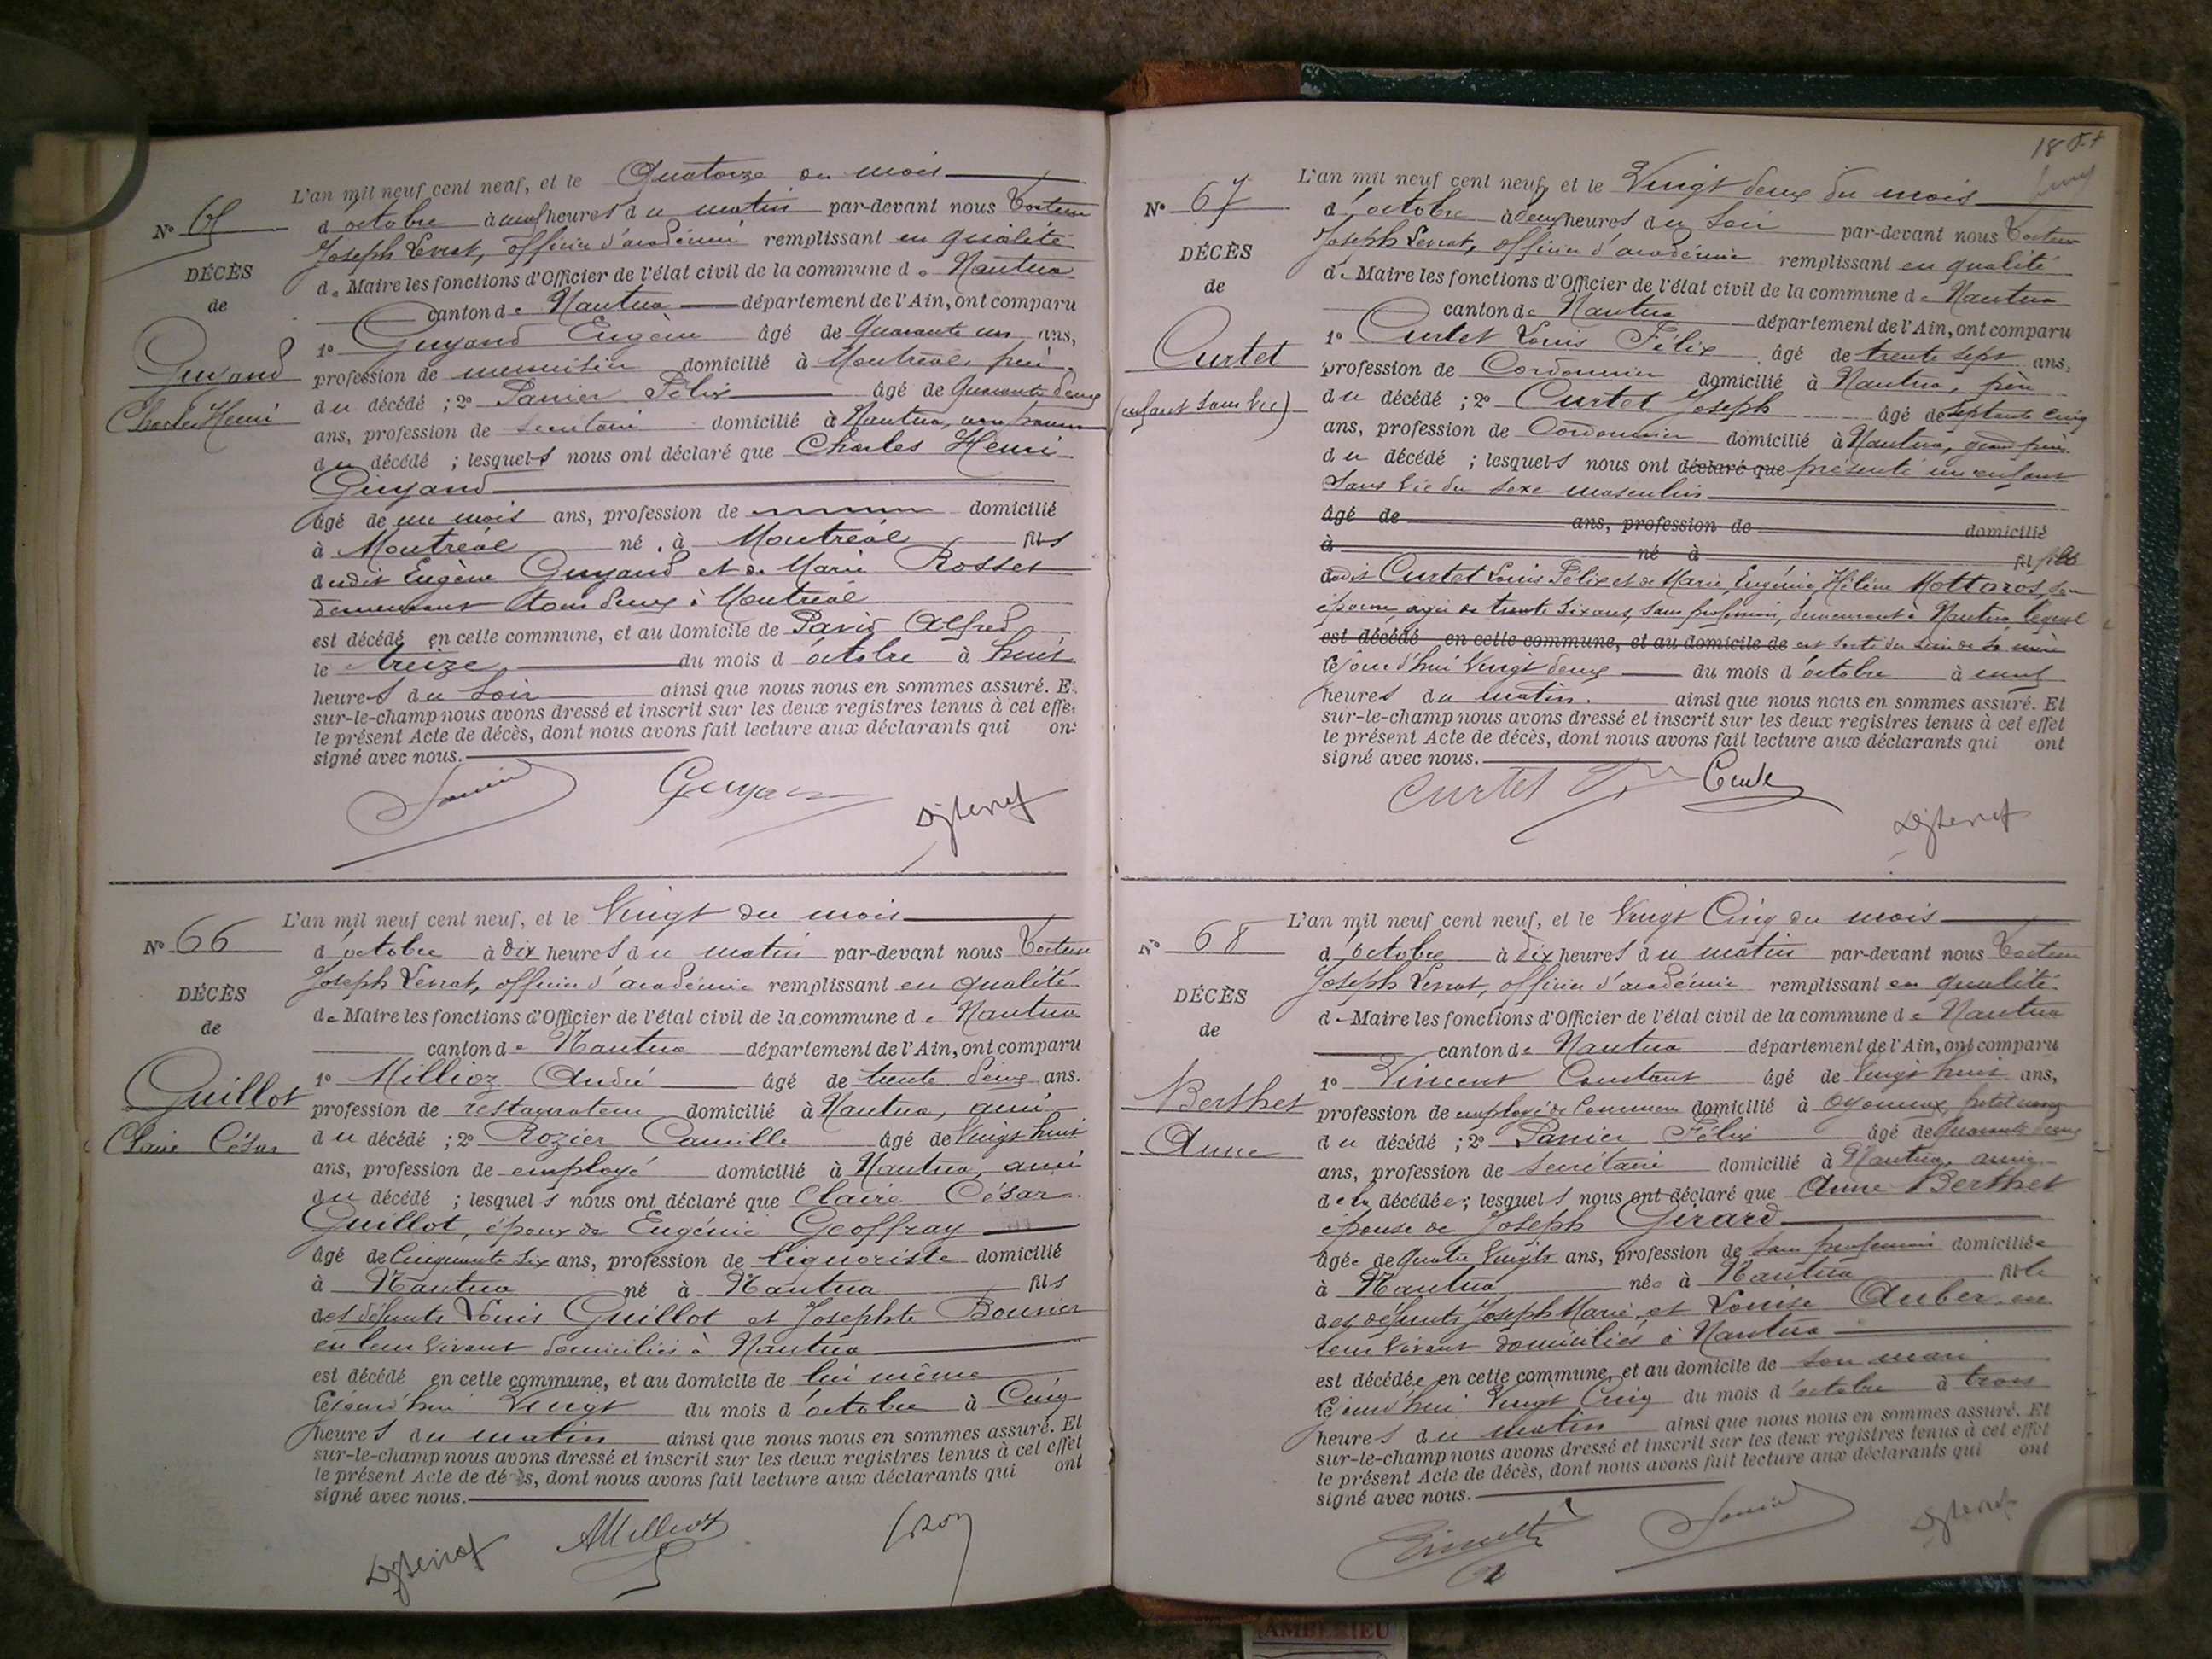 L'an mil neuf cent neuf, et le Quatorze du mois
N° 65
d'octobre à neuf heures du matin par-devant nous Docteur
Joseph Levrat, officier d'académie remplissant en qualité
DÉCÈS
de Maire les fonctions d'Officier de l'état civil de la commune de Nantua
de
canton de Nantua département de l'Ain, ont comparu
1° Guyand Eugène âgé de Quarante un ans,
Guyand
profession de menuisier domicilié à Montréal, père
Charles Henri
du décédé ; 2° Panier Félix âgé de Quarante deux
ans, profession de secrétaire domicilié à Nantua, non parent
du décédé ; lesquels nous ont déclaré que Charles Henri
Guyand
âgé de un mois ans, profession de domicilié
à Montréal né à Montréal fils
dudit Eugène Guyand et de Marie Rosset
demeurant tous deux à Montréal
est décédé en cette commune, et au domicile de David Alfred
le treize du mois d'octobre à huit
heures du soir ainsi que nous nous en sommes assuré. Et
sur-le-champ nous avons dressé et inscrit sur les deux registres tenus à cet effet
le présent Acte de décès, dont nous avons fait lecture aux déclarants qui ont
signé avec nous.
Guyand
L'an mil neuf cent neuf, et le Vingt du mois
N° 66
d'octobre à dix heures du matin par-devant nous Docteur
Joseph Levrat, officier d'académie remplissant en qualité
DÉCÈS
de Maire les fonctions d'Officier de l'état civil de la commune de Nantua
de
canton de Nantua département de l'Ain, ont comparu
1° Millioz André âgé de trente deux ans.
Guillot
profession de restaurateur domicilié à Nantua, ami
Claire César
du décédé ; 2° Rozier Camille âgé de Vingt huit
ans, profession de employé domicilié à Nantua, ami
du décédé ; lesquels nous ont déclaré que Claire César
Guillot, époux de Eugénie Geoffray
âgé de Cinquante six ans, profession de liquoriste domicilié
à Nantua né à Nantua fils
des défunts Louis Guillot et Josephte Bouvier
en leur vivant domiciliés à Nantua
est décédé en cette commune, et au domicile de lui même
cejourd'hui Vingt du mois d'octobre à Cinq
heures du matin ainsi que nous nous en sommes assuré. Et
sur-le-champ nous avons dressé et inscrit sur les deux registres tenus à cet effet
le présent Acte de décès, dont nous avons fait lecture aux déclarants qui ont
signé avec nous.
AMillioz
L'an mil neuf cent neuf, et le Vingt deux du mois
N° 67
d'octobre à deux heures du soir par-devant nous Docteur
Joseph Levrat, officier d'académie remplissant en qualité
DÉCÈS
de Maire les fonctions d'Officier de l'état civil de la commune de Nantua
de
canton de Nantua département de l'Ain, ont comparu
1° Curtet Louis Félix âgé de trente sept ans,
Curtet
profession de Cordonnier domicilié à Nantua, père
(enfant sans vie)
du décédé ; 2° Curtet Joseph âgé de septante cinq
ans, profession de Cordonnier domicilié à Nantua, grand père
du décédé ; lesquels nous ont déclaré que présenté un enfant
sans vie du sexe masculin
âgé de ans, profession de domicilié
à né à fil fils
dudit Curtet Louis Félix et de Marie, Eugénie, Hélène Mottaros, son
épouse, âgée de trente six ans, sans profession, demeurant à Nantua, lequel
est décédé en cette commune, et au domicile de est sorti du sein de sa mère
cejourd'hui Vingt deux du mois d'octobre à neuf
heures du matin. ainsi que nous nous en sommes assuré. Et
sur-le-champ nous avons dressé et inscrit sur les deux registres tenus à cet effet
le présent Acte de décès, dont nous avons fait lecture aux déclarants qui ont
signé avec nous.
Curtet
L'an mil neuf cent neuf, et le Vingt Cinq du mois
N° 68
d'octobre à dix heures du matin par-devant nous Docteur
Joseph Levrat, officier d'académie remplissant en qualité
DÉCÈS
de Maire les fonctions d'Officier de l'état civil de la commune de Nantua
de
canton de Nantua département de l'Ain, ont comparu
1° Vincent Constant âgé de Vingt huit ans,
Berthet
profession de employé de Commerce domicilié à Oyonnax, petit neveu
Anne
du décédé ; 2° Panier Félix âgé de Quarante deux
ans, profession de secrétaire domicilié à Nantua, ami
de la décédée ; lesquels nous ont déclaré que Anne Berthet
épouse de Joseph Girard
âgée de Quatre Vingts ans, profession de sans profession domiciliée
à Nantua née à Nantua fille
des défunts Joseph Marie, et Louise Auber en
leur vivant domiciliés à Nantua
est décédée en cette commune, et au domicile de son mari
cejourd'hui Vingt Cinq du mois d'octobre à trois
heures du matin ainsi que nous nous en sommes assuré. Et
sur-le-champ nous avons dressé et inscrit sur les deux registres tenus à cet effet
le présent Acte de décès, dont nous avons fait lecture aux déclarants qui ont
signé avec nous.